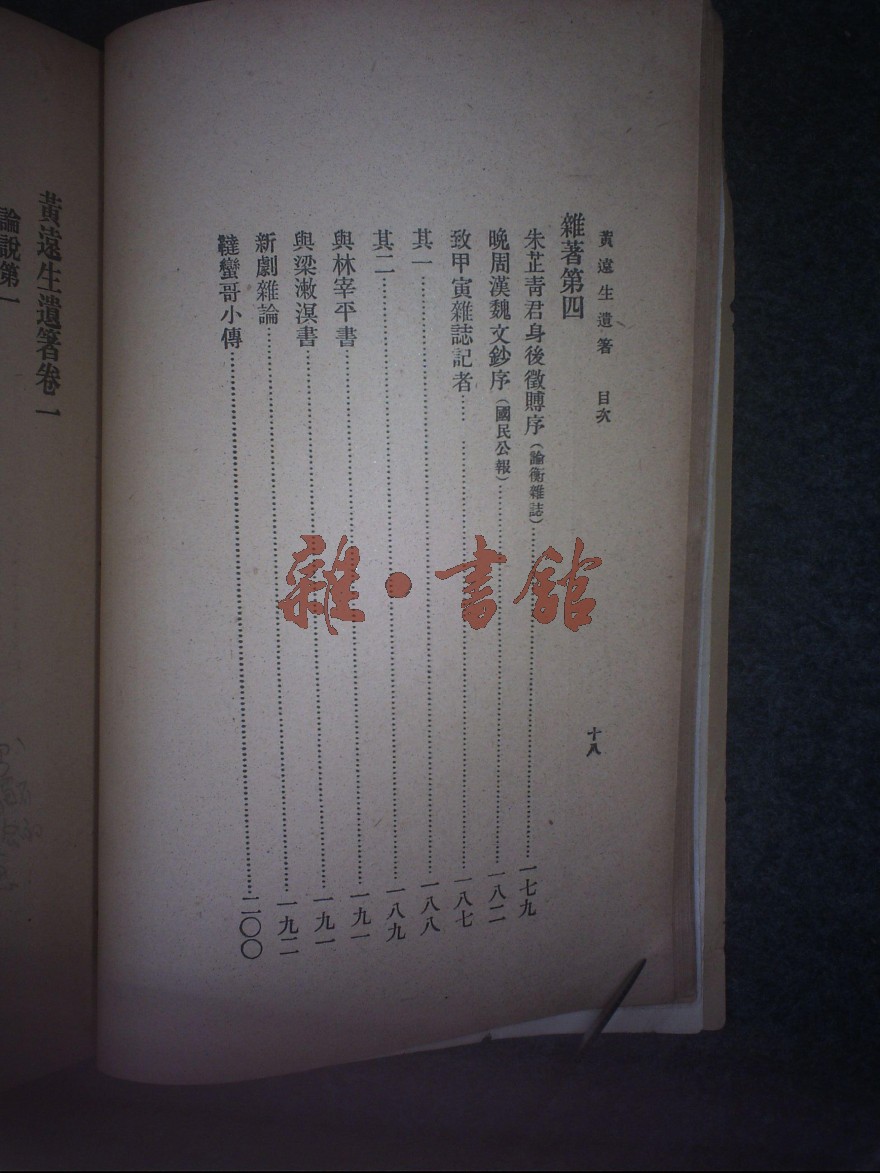 黃遠生遺箸 目次 十八
雜著第四
朱芷青君身後徵賻序（論衡雜誌）……一七九
晚周漢魏文鈔序（國民公報）……一八二
致甲寅雜誌記者……一八七
其一……一八八
其二……一八九
與林宰平書……一九一
與梁漱溟書……一九一
新劇雜論……一九二
韃蠻哥小傳……二〇〇
黃遠生遺箸卷一
論說第一
雜·書館